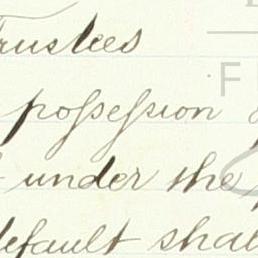 Trustees
possession
under the
default shal